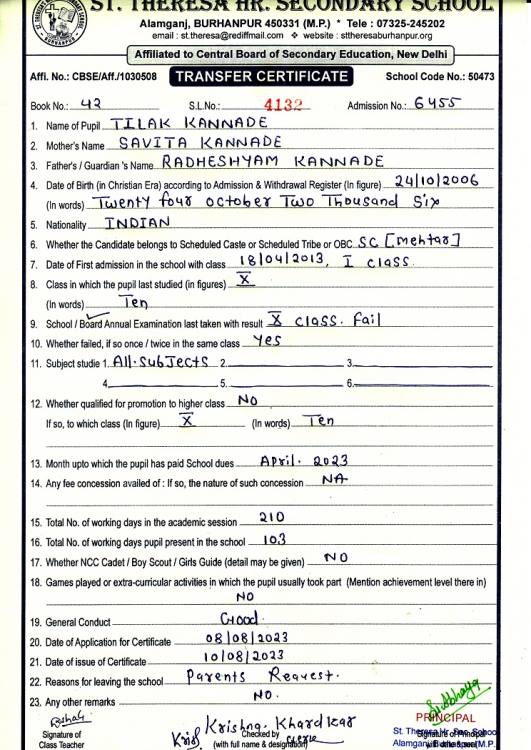 ST. THERESA HR. SECONDARY SCHOOL
Alamganj, BURHANPUR 450331 (M.P.) * Tele : 07325-245202
email : st.theresa@rediffmail.com ❖ website : sttheresaburhanpur.org
Affiliated to Central Board of Secondary Education, New Delhi
Affi. No.: CBSE/Aff./1030508 TRANSFER CERTIFICATE School Code No.: 50473
Book No.: 42 S.L.No.: 4132 Admission No.: 6455
1. Name of Pupil TILAK KANNADE
2. Mother's Name SAVITA KANNADE
3. Father's / Guardian 's Name RADHESHYAM KANNADE
4. Date of Birth (in Christian Era) according to Admission & Withdrawal Register (In figure) 24/10/2006
(In words) Twenty four october Two Thousand Six
5. Nationality INDIAN
6. Whether the Candidate belongs to Scheduled Caste or Scheduled Tribe or OBC SC [Mehtar]
7. Date of First admission in the school with class 18/04/2013, I class
8. Class in which the pupil last studied (in figures) X
(In words) Ten
9. School / Board Annual Examination last taken with result X class. Fail
10. Whether failed, if so once / twice in the same class Yes
11. Subject studie 1. All-SubJects 2. 3.
4. 5. 6.
12. Whether qualified for promotion to higher class NO
If so, to which class (In figure) X (In words) Ten
13. Month upto which the pupil has paid School dues April. 2023
14. Any fee concession availed of : If so, the nature of such concession NA
15. Total No. of working days in the academic session 210
16. Total No. of working days pupil present in the school 103
17. Whether NCC Cadet / Boy Scout / Girls Guide (detail may be given) NO
18. Games played or extra-curricular activities in which the pupil usually took part (Mention achievement level there in)
NO
19. General Conduct Good.
20. Date of Application for Certificate 08/08/2023
21. Date of issue of Certificate 10/08/2023
22. Reasons for leaving the school Parents Request.
23. Any other remarks NO.
Krishna Khardkar
PRINCIPAL
Signature of Checked by clerk St. Theresa Hr. Sec. School
Class Teacher (with full name & designation) Alamganj (M.P.